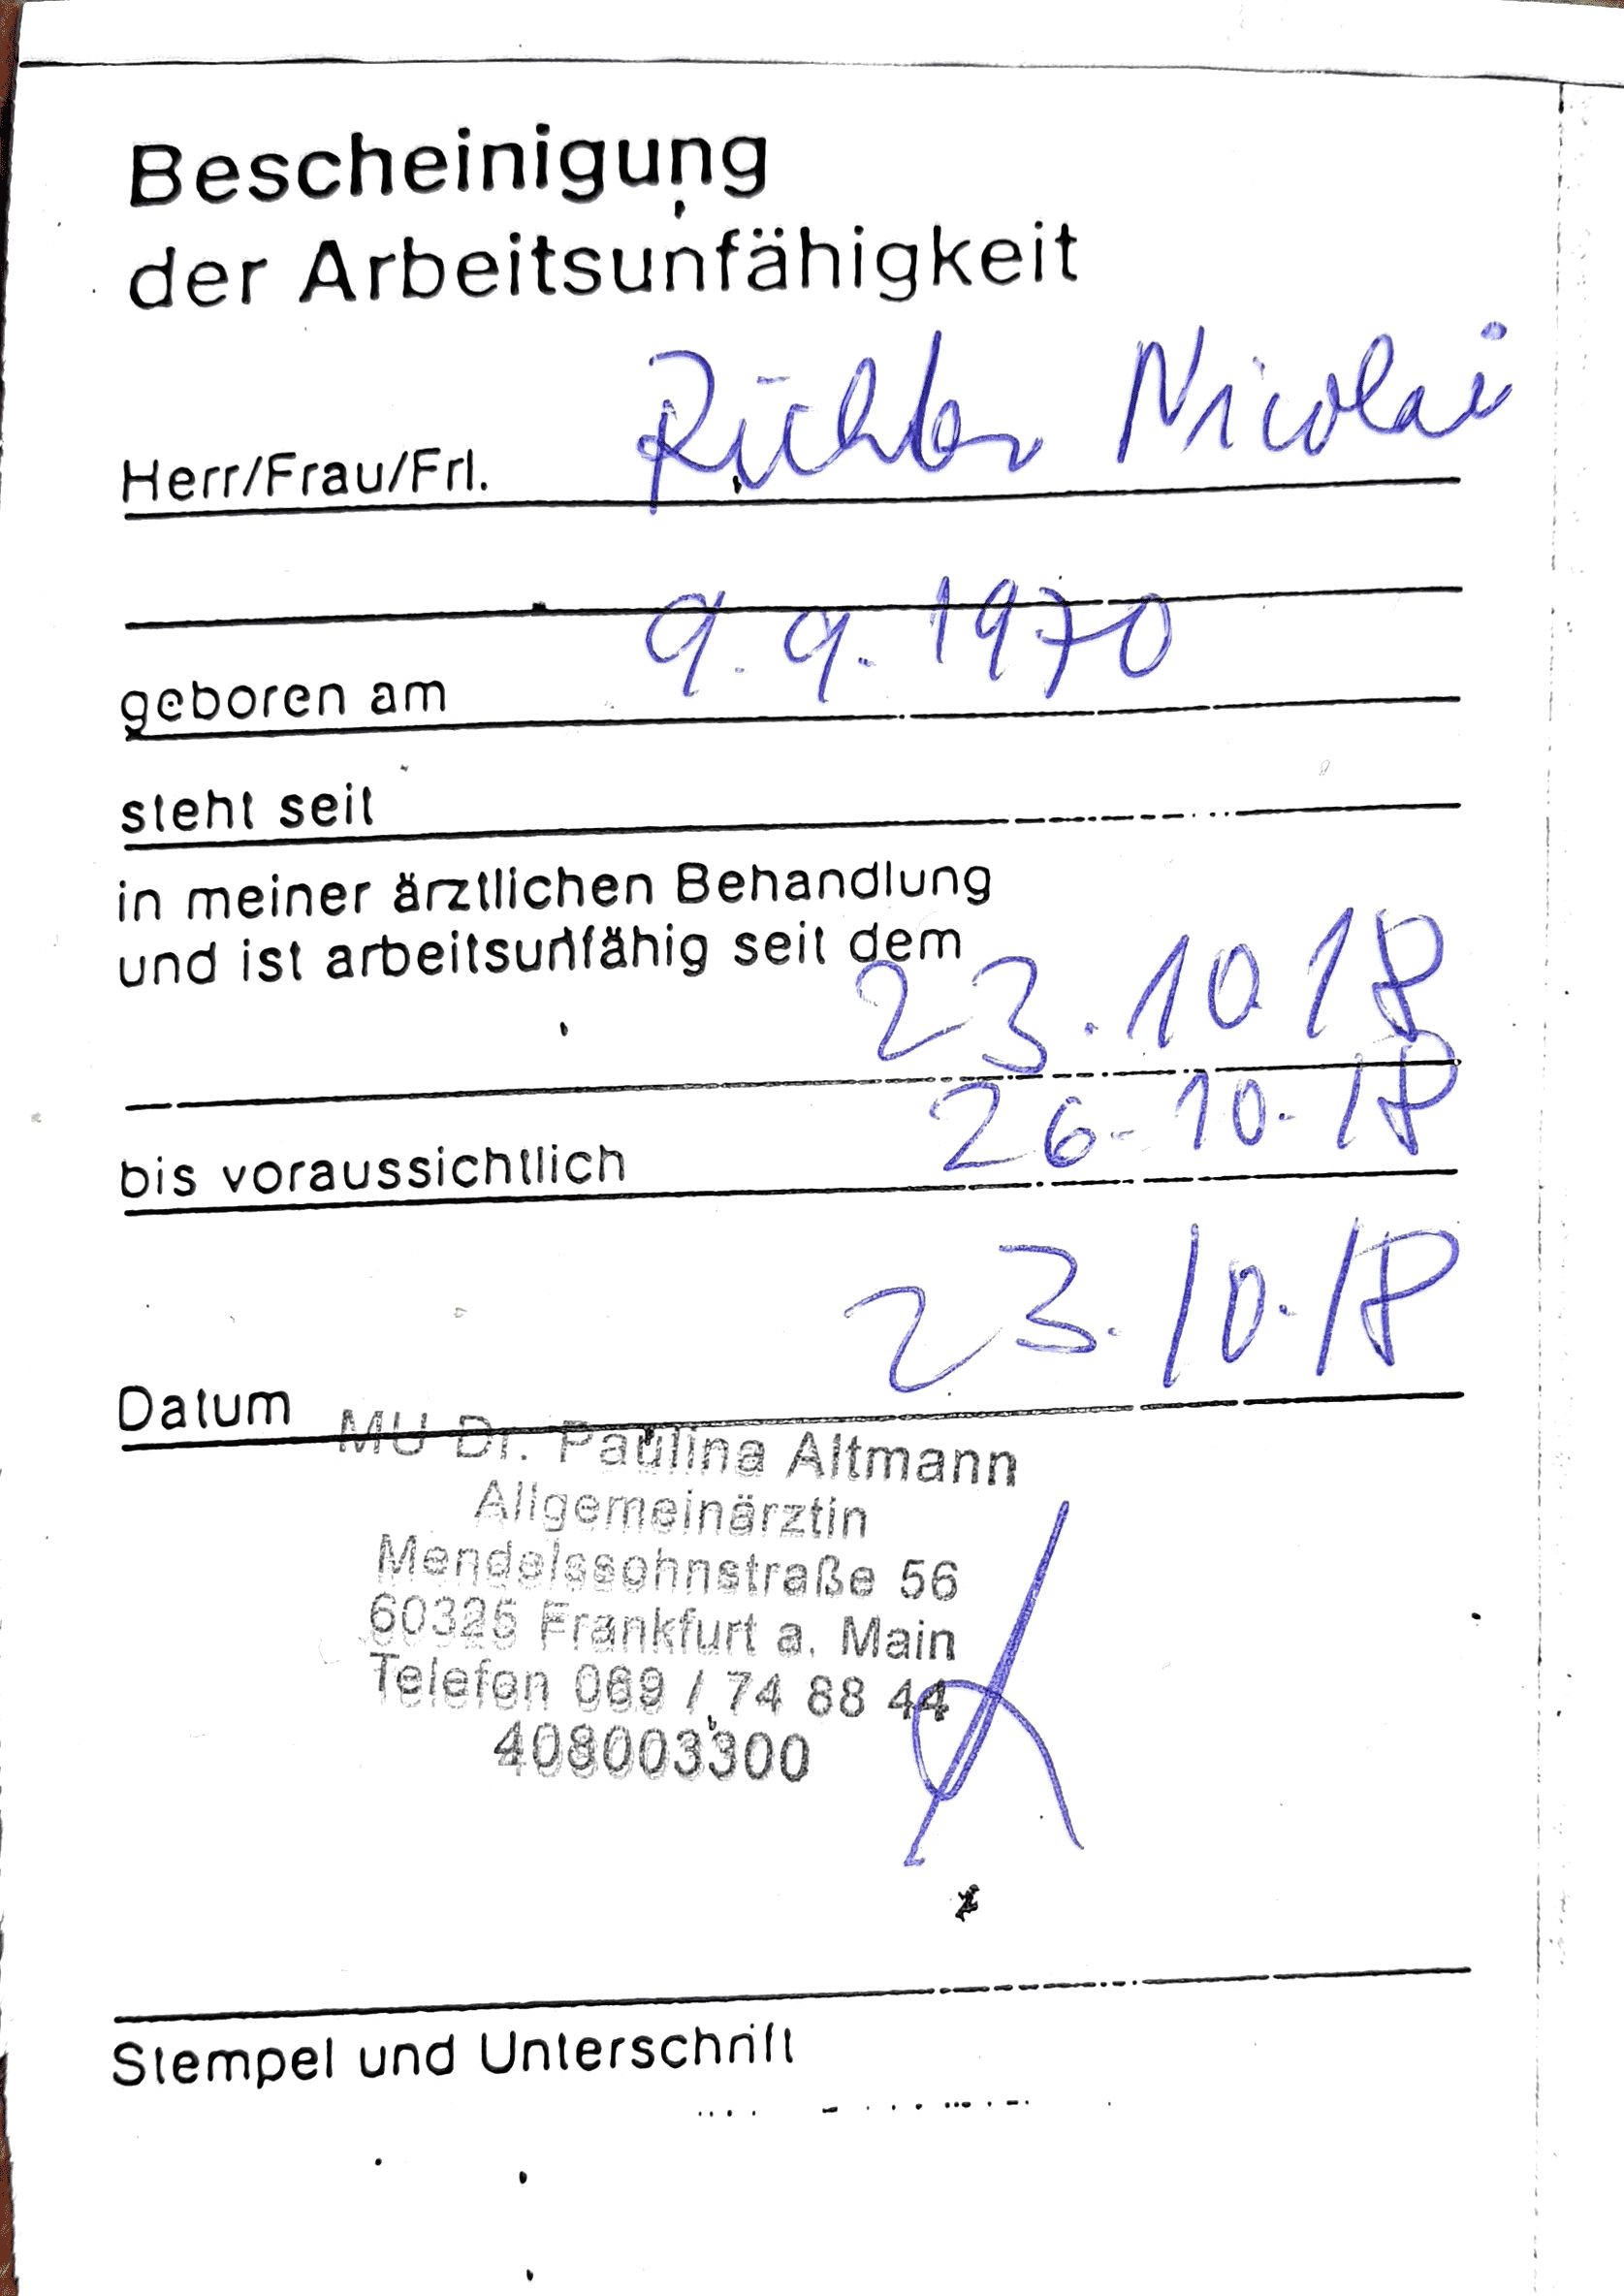 Bescheinigung
der Arbeitsunfähigkeit
Herr/Frau/Frl. Nicolai
9.9.1970
geboren am
steht seit
in meiner ärztlichen Behandlung
und ist arbeitsunfähig seit dem
23.10.18
bis voraussichtlich 26.10.18
23.10.18
Datum
MU Dr. Paulina Altmann
Allgemeinärztin
Mendelssohnstraße 56
60325 Frankfurt a. Main
Telefon 069 / 74 88 44
408003300
Stempel und Unterschrift